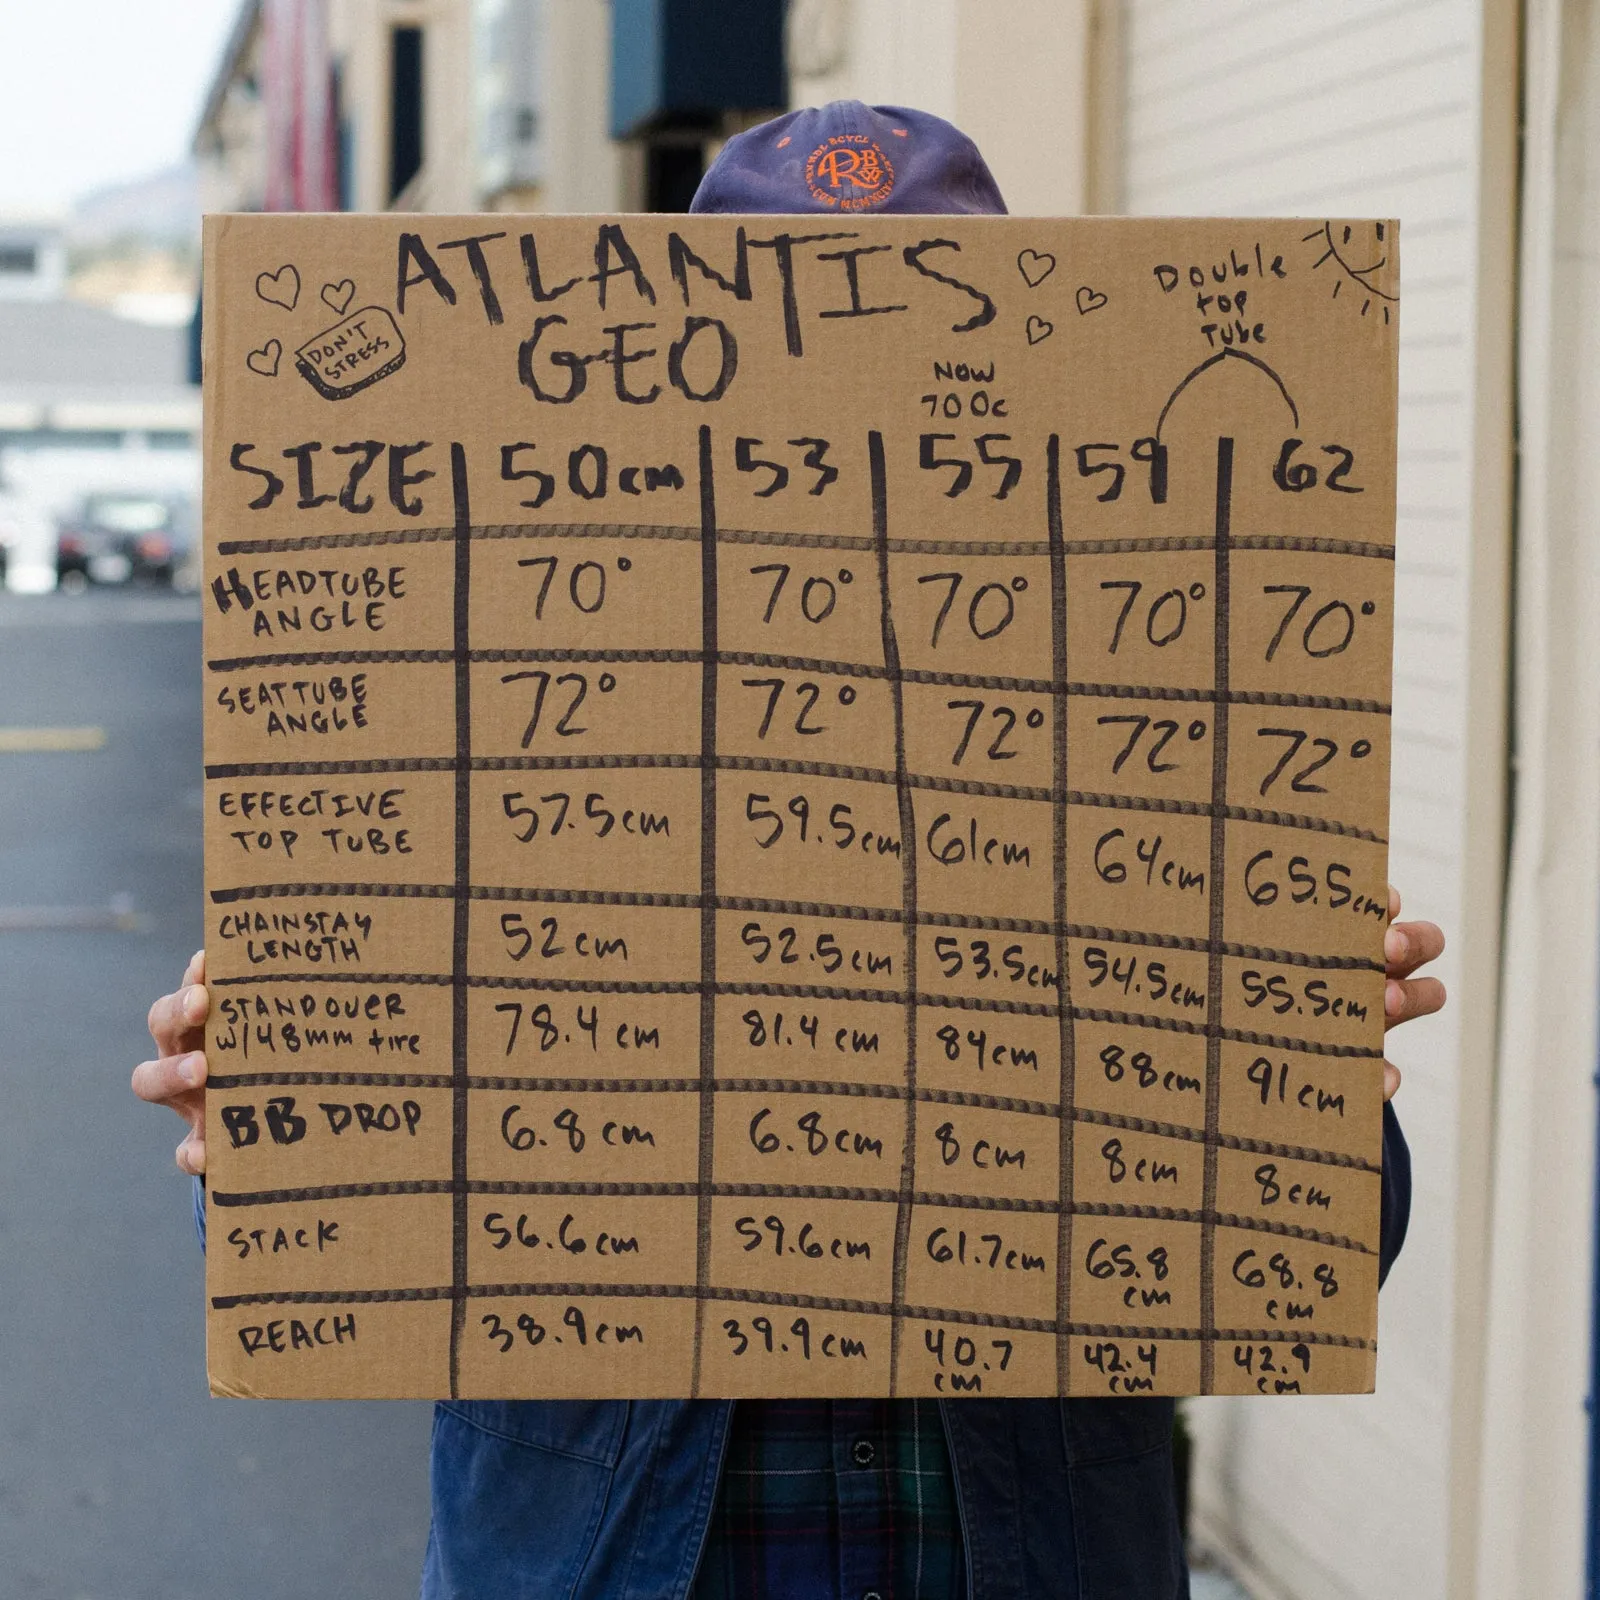 RB
ATLANTIS
GEO
DON'T
STRESS
Double
top
Tube
NOW
700c
SIZE 50cm 53 55 59 62
HEADTUBE
ANGLE 70° 70° 70° 70° 70°
SEAT TUBE
ANGLE 72° 72° 72° 72° 72°
EFFECTIVE
TOP TUBE 57.5cm 59.5cm 61cm 64cm 65.5cm
CHAINSTAY
LENGTH 52cm 52.5cm 53.5cm 54.5cm 55.5cm
STANDOVER
w/48mm tire 78.4 cm 81.4 cm 84cm 88cm 91cm
BB DROP 6.8 cm 6.8cm 8cm 8cm 8cm
STACK 56.6cm 59.6cm 61.7cm 65.8
cm 68.8
cm
REACH 38.9cm 39.9cm 40.7
cm 42.4
cm 42.9
cm